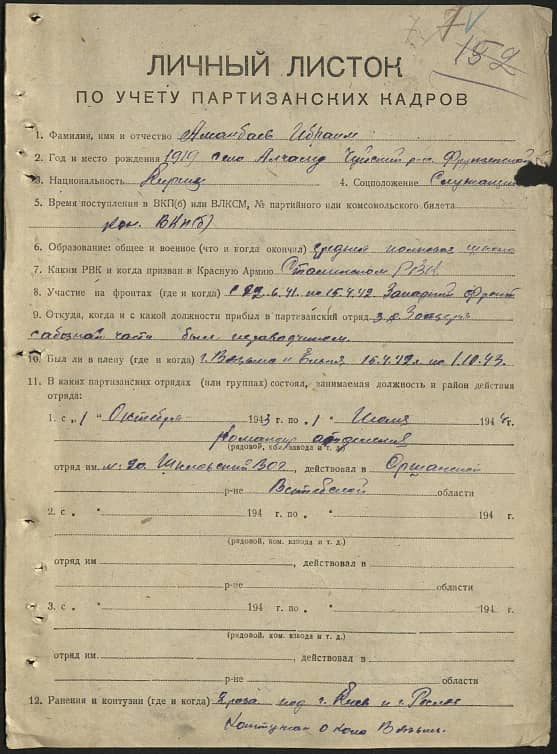 152
ЛИЧНЫЙ ЛИСТОК
ПО УЧЕТУ ПАРТИЗАНСКИХ КАДРОВ
1. Фамилия, имя и отчество Аманбаев Ибраим
2. Год и место рождения 1919 село Чуйский р-н Фрунзенской
3. Национальность Киргиз 4. Соцположение Служащий
5. Время поступления в ВКП(б) или ВЛКСМ, № партийного или комсомольского билета
кан. ВКП(б)
6. Образование: общее и военное (что и когда окончил) средний полковая школа
7. Каким РВК и когда призван в Красную Армию Сталинском РВК
8. Участие на фронтах (где и когда) с 22.6.41. по 15.4.42. Западний фронт
9. Откуда, когда и с какой должности прибыл в партизанский отряд
части был
10. Был ли в плену (где и когда) г. Вязьма и Ельня 15.4.42 г по 1.10.43.
11. В каких партизанских отрядах (или группах) состоял, занимаемая должность и район действия
отряда:
1. с „1 " Октября 1943 г. по „1 " Июля 1944 г.
Командир отделения
(рядовой, ком. взвода и т. д.)
отряд им. действовал в Оршанской
р-не Витебской области
2. с „ " 194 г. по „ " 194 г.
(рядовой, ком. взвода и т. д.)
отряд им , действовал в
р-не области
3. с „ " 194 г. по „ " 194 г.
(рядовой, ком. взвода и т. д.)
отряд им. , действовал в
р-не области
12. Ранения и контузии (где и когда) под г. и г.
около Вязьмы.